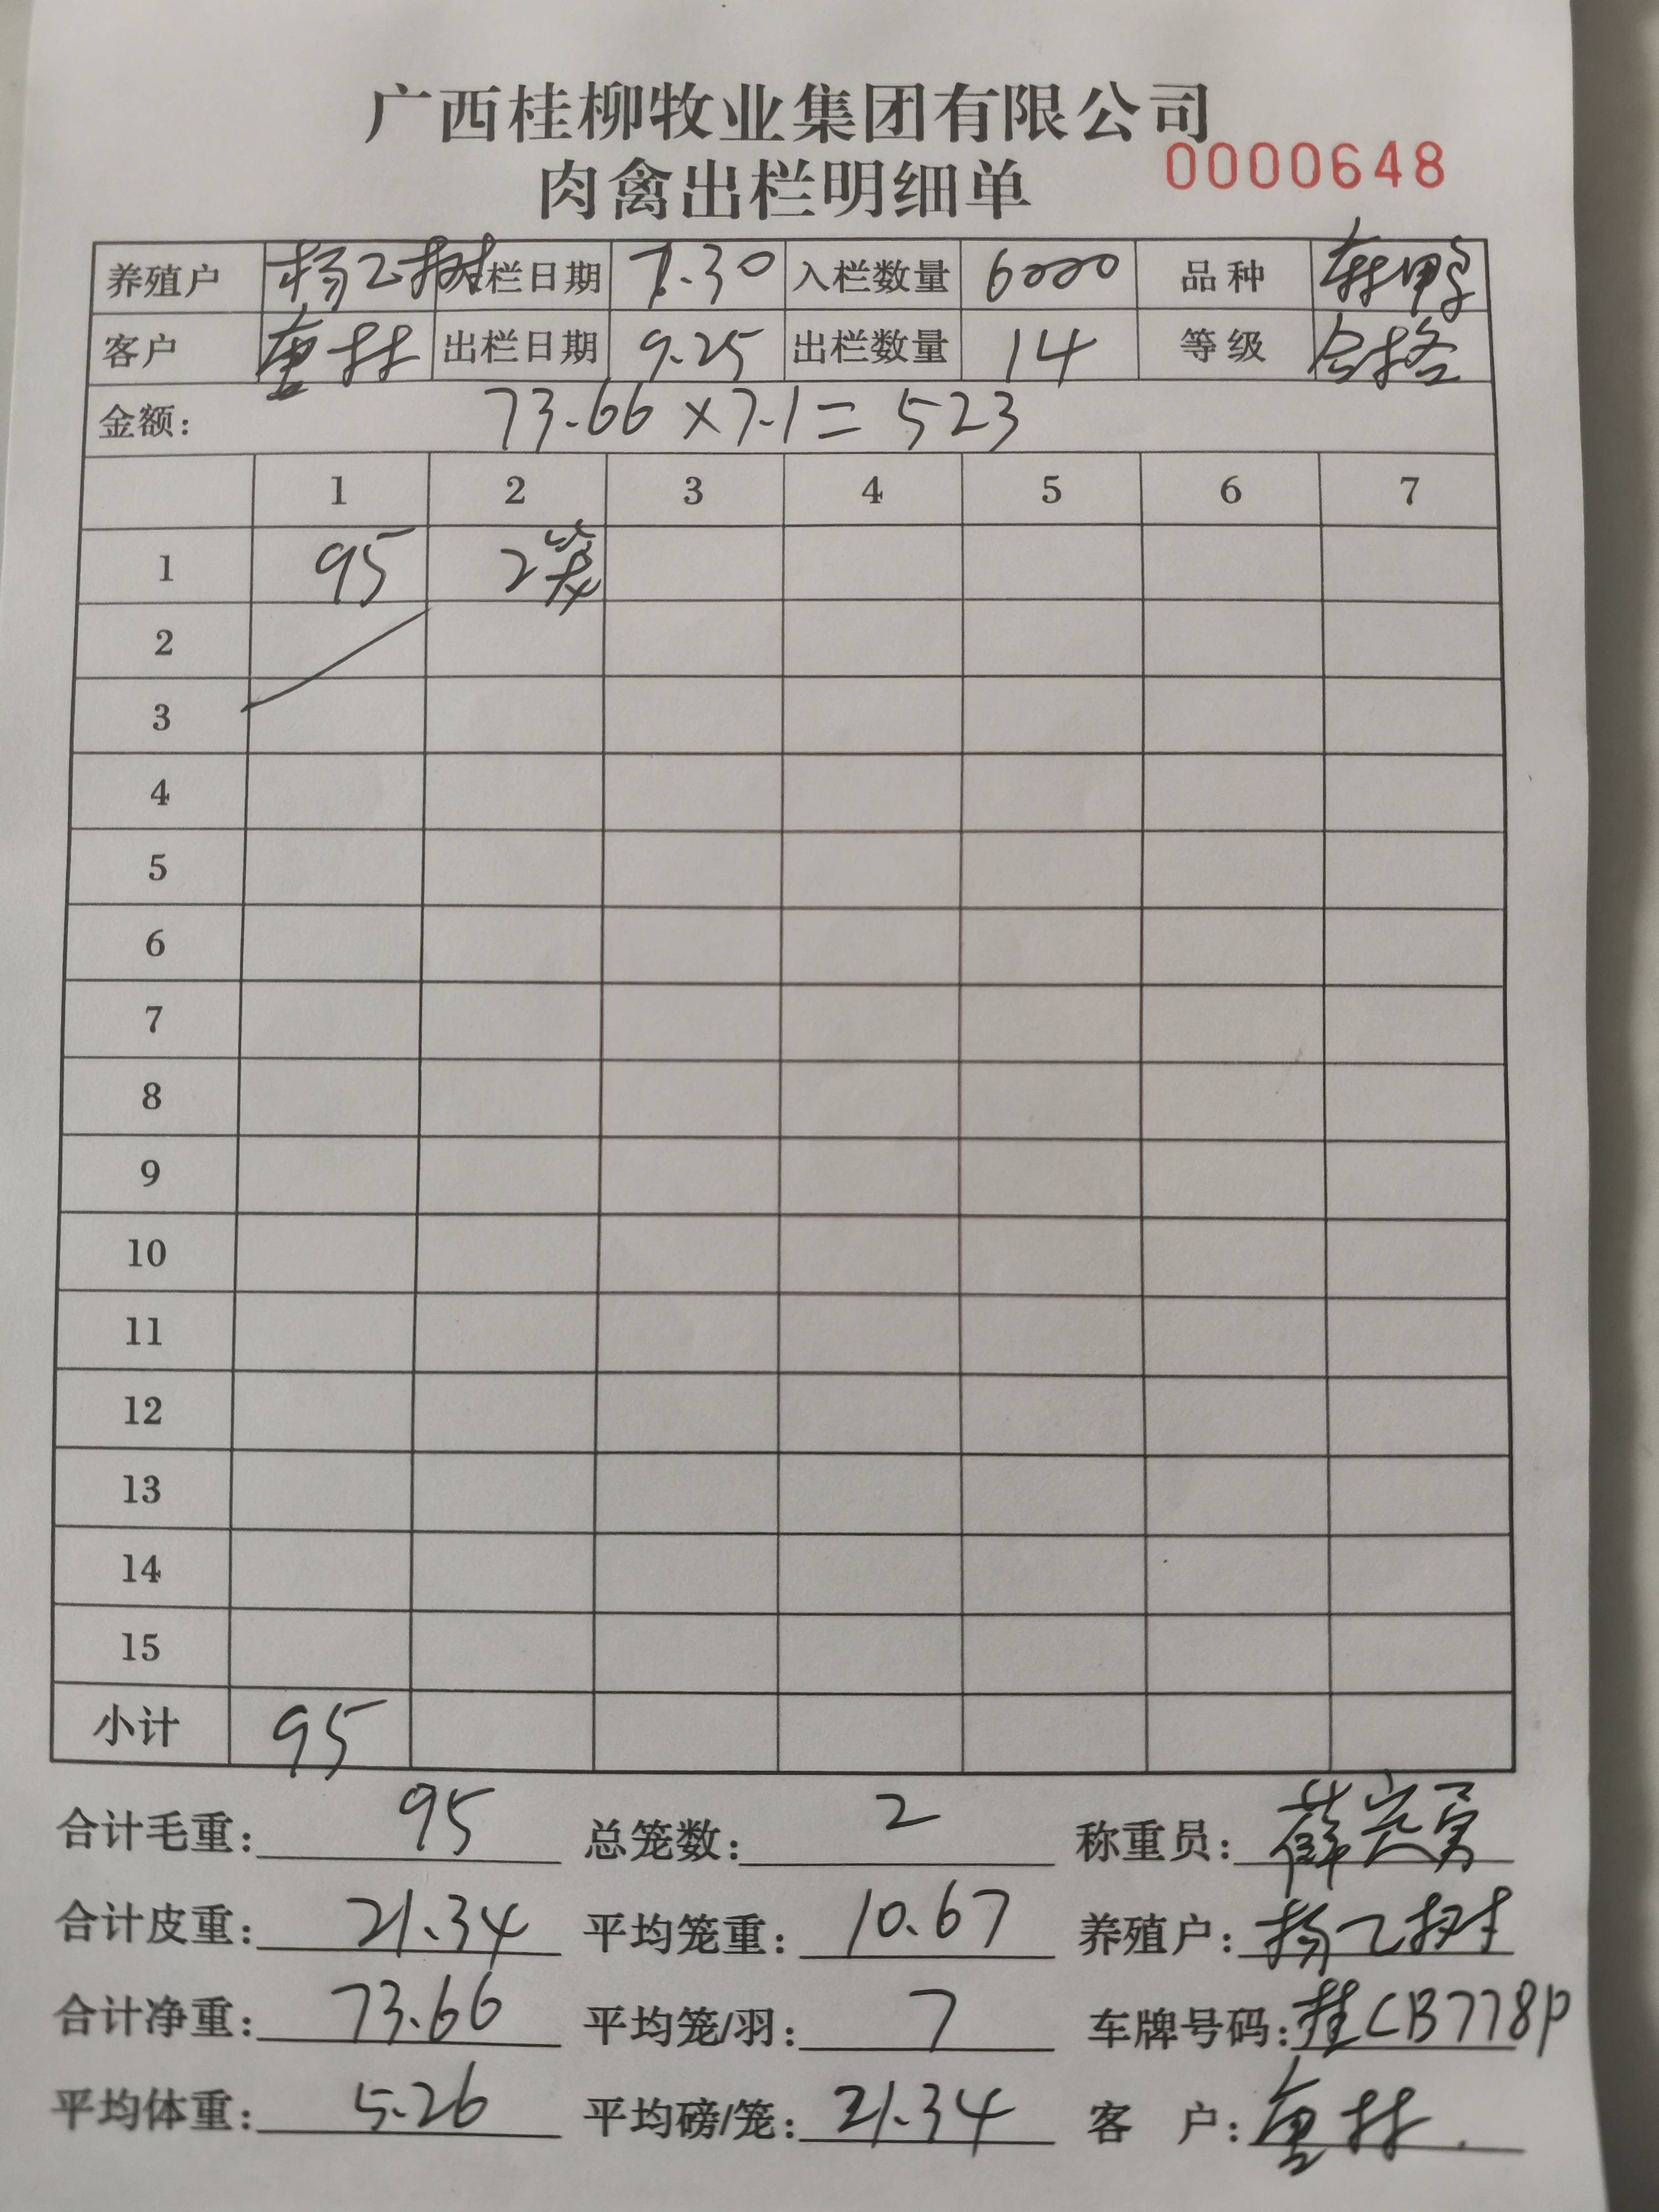 广西桂柳牧业集团有限公司
肉禽出栏明细单 0000648
养殖户 杨乙树 栏日期 7.30 入栏数量 6000 品种 麻鸭
客户 唐林 出栏日期 9.25 出栏数量 14 等级 合格
金额: 73.66×7.1=523
1 2 3 4 5 6 7
1 95 2笼
2
3
4
5
6
7
8
9
10
11
12
13
14
15
小计 95
合计毛重: 95 总笼数: 2 称重员: 薛
合计皮重: 21.34 平均笼重: 10.67 养殖户: 杨乙树
合计净重: 73.66 平均笼/羽: 7 车牌号码: 桂CB778P
平均体重: 5.26 平均磅/笼: 21.34 客 户: 唐林